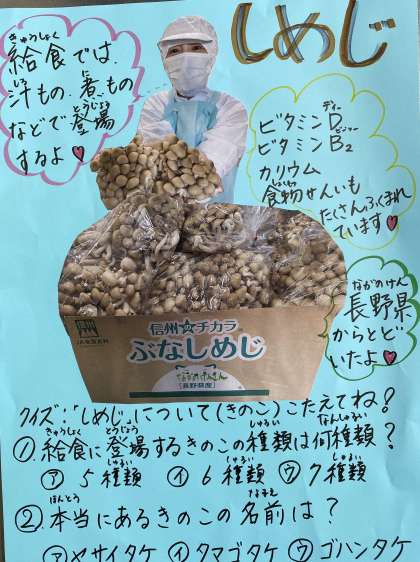 しめじ
給食では、
汁もの、煮もの
などで登場
するよ
ビタミンD
ビタミンB₂
カリウム
食物せんいも
たくさんふくまれ
ています
長野県
からとど
いたよ
信州☆チカラ
ぶなしめじ
ながのけんさん
【長野県産】
クイズ:「しめじ」について(きのこ)こたえてね?
①.給食に登場するきのこの種類は何種類?
㋐ 5種類 ㋑ 6種類 ㋒ 7種類
②.本当にあるきのこの名前は?
㋐ヤサイタケ ㋑タマゴタケ ㋒ゴハンタケ